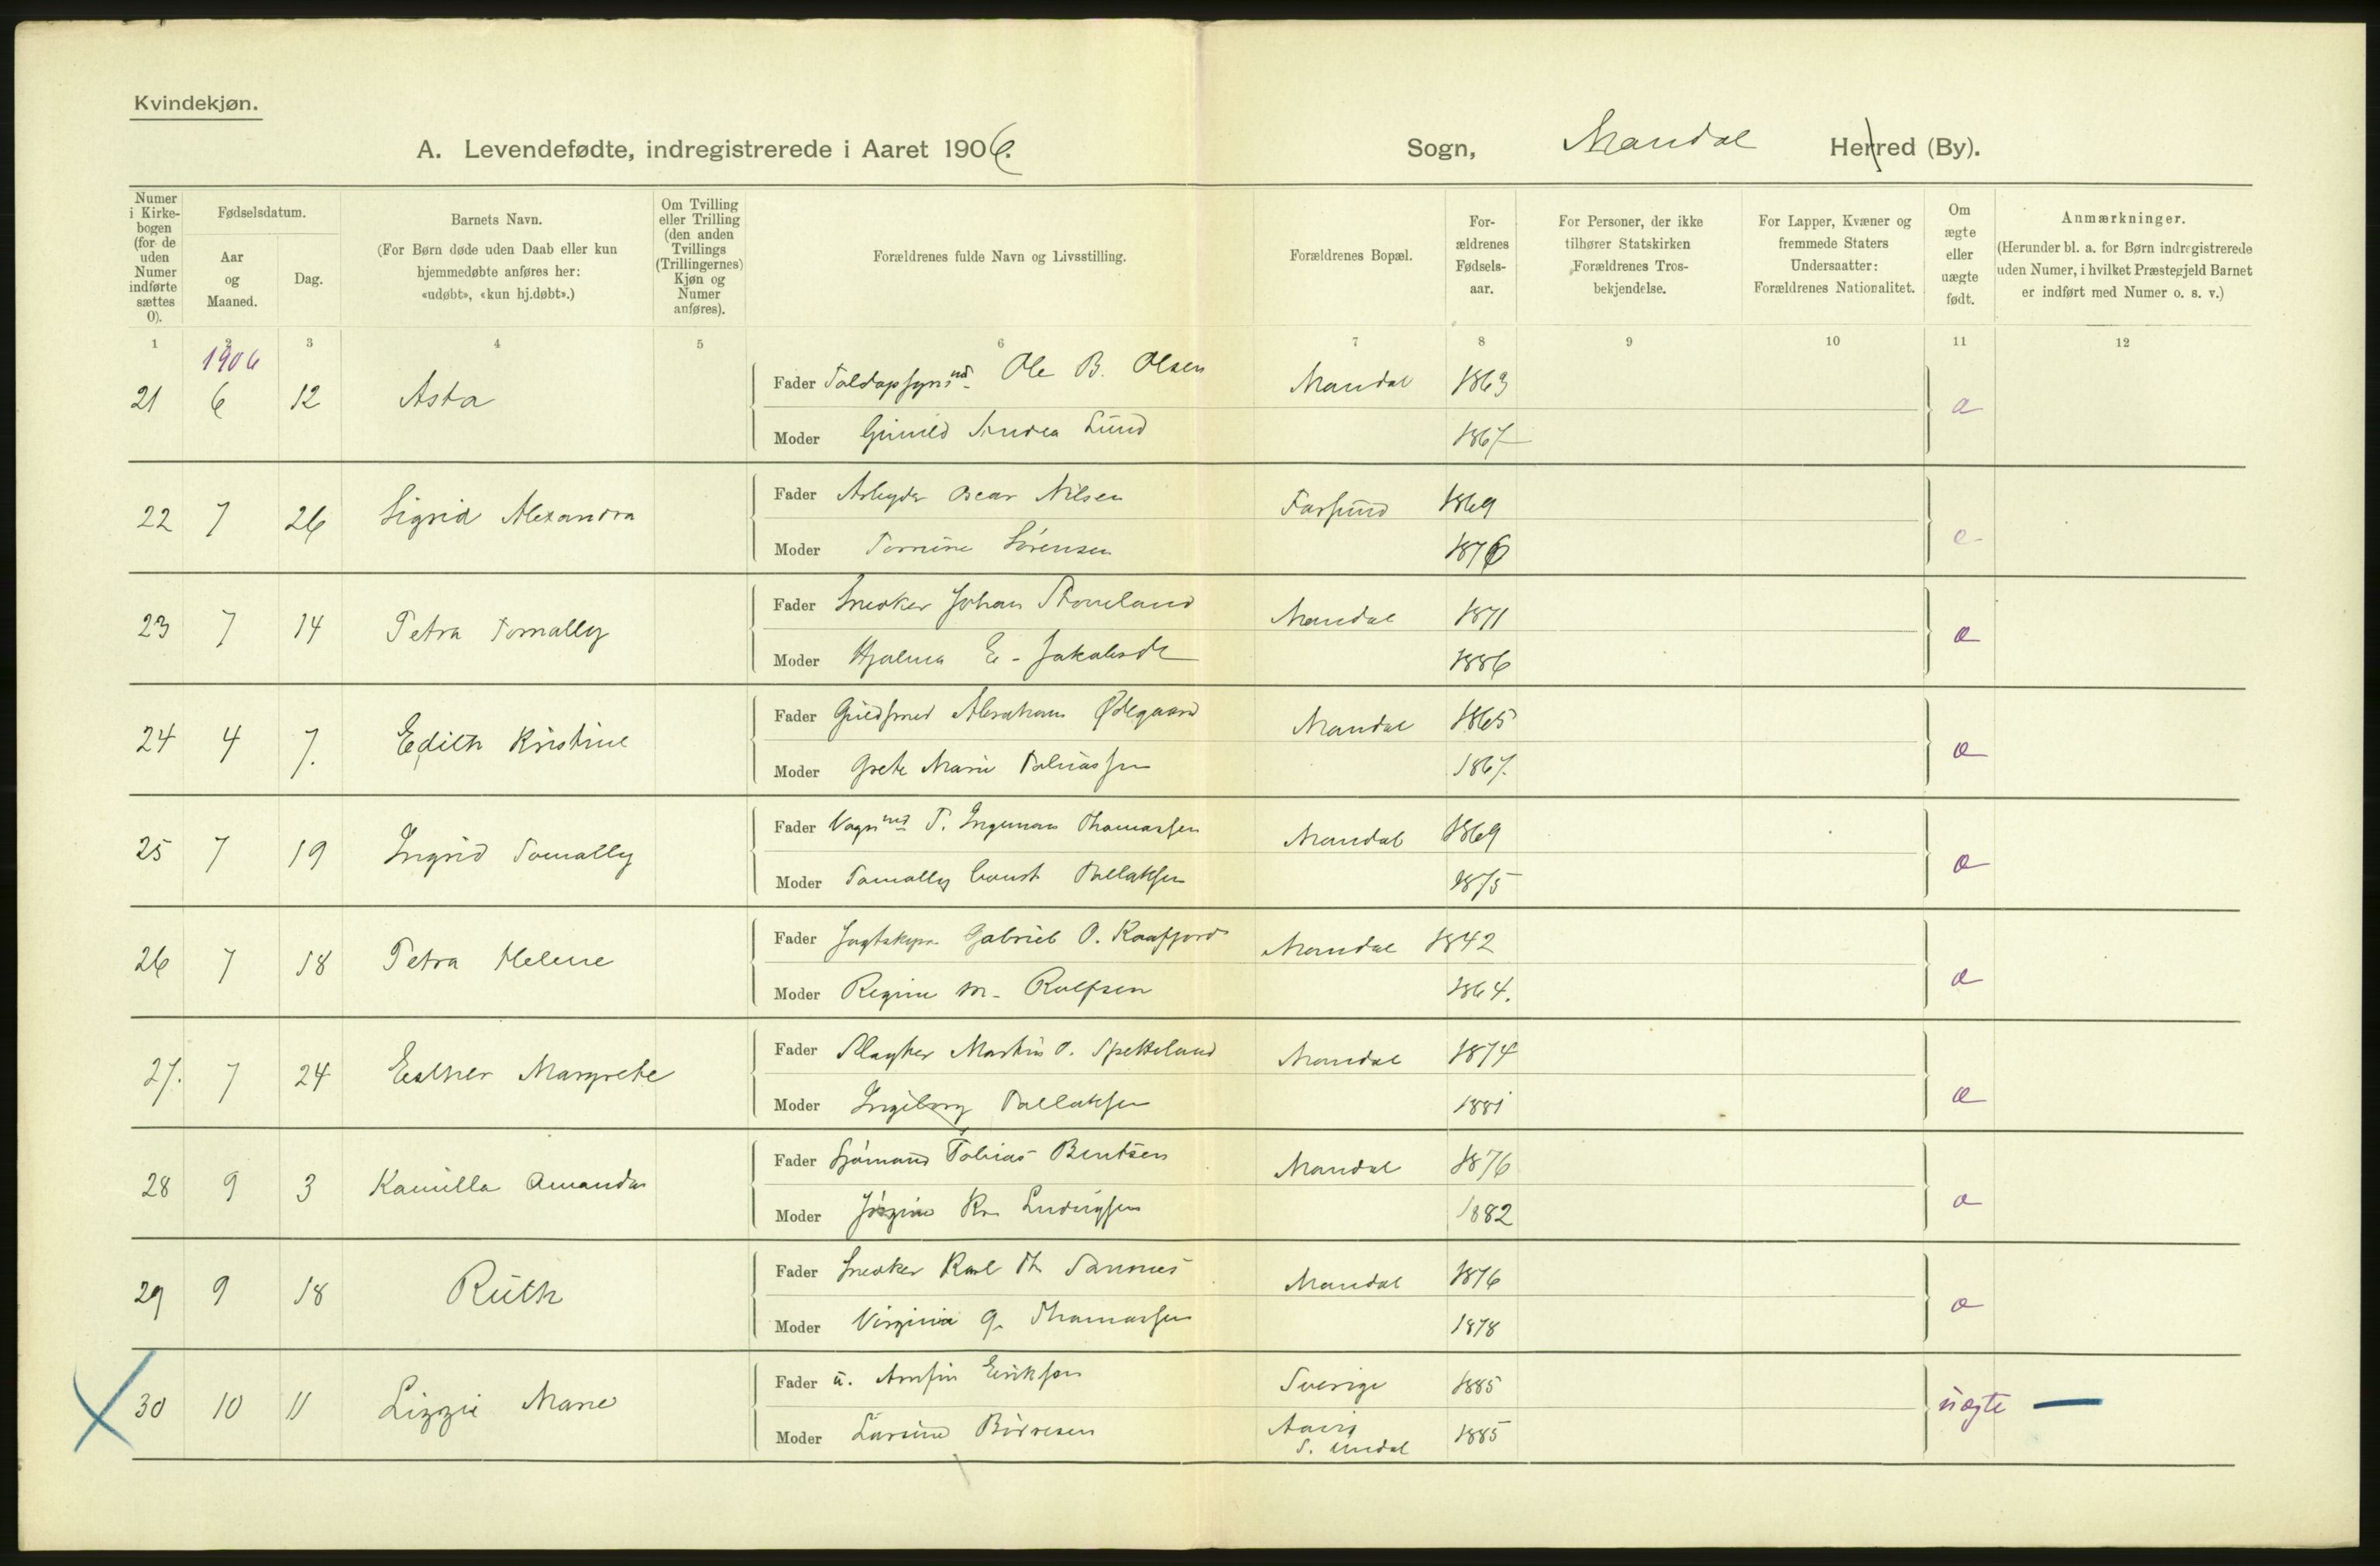 Kvindekjøn.
A. Levendefødte, indregistrerede i Aaret 1906.
Sogn, Mandal Herred (By).
Numer i Kirkebogen (for de uden Numer indførte sættes 0).
Fødselsdatum.
Aar og Maaned.
Dag.
Barnets Navn.
(For Børn døde uden Daab eller kun hjemmedøbte anføres her: «udøbt», «kun hj.døbt».)
Om Tvilling eller Trilling (den anden Tvillings (Trillingernes) Kjøn og Numer anføres).
Forældrenes fulde Navn og Livsstilling.
Forældrenes Bopæl.
Forældrenes Fødselsaar.
For Personer, der ikke tilhører Statskirken Forældrenes Trosbekjendelse.
For Lapper, Kvæner og fremmede Staters Undersaatter: Forældrenes Nationalitet.
Om ægte eller uægte født.
Anmærkninger.
(Herunder bl. a. for Børn indregistrerede uden Numer, i hvilket Præstegjeld Barnet er indført med Numer o. s. v.)
1 2 3 4 5 6 7 8 9 10 11 12
1906
21 6 12 Asta Fader Toldopsynsmd Ole B. Olsen Mandal 1863
Moder Gunild Andrea Lund 1867
22 7 26 Sigrid Alexandra Fader Arbeyder Oscar Nilsen Farsund 1869
Moder Tomine Sørensen 1876
23 7 14 Petra Tomally Fader Snedker Johan Stoveland Mandal 1871 æ
Moder Hjalma E. Jakobsdt 1886
24 4 7. Edith Kristine Fader Guldsmed Abraham Ødegaard Mandal 1865 æ
Moder Grete Marie Tobiassen 1867.
25 7 19 Ingrid Tomally Fader Vognmd T. Ingeman Thomassen Mandal 1869 æ
Moder Tomally Const Tallaksen 1875
26 7 18 Petra Helene Fader Jagtskipr. Gabriel O. Kaafjord Mandal 1842 æ
Moder Regine M. Rolfsen 1864.
27. 7 24 Esther Margrete Fader Slagter Martin O. Spetteland Mandal 1874 æ
Moder Ingeborg Tallaksen 1881
28 9 3 Kamilla Amanda Fader Sjømand Tobias Bentsen Mandal 1876 æ
Moder Jørgine Kr. Ludvigsen 1882
29 9 18 Ruth Fader Snedker Karl Th Sannes Mandal 1876 æ
Moder Virginia G. Thomassen 1878
30 10 11 Lizzie Marie Fader u. Arnfin Eriksen Sverige 1885 uægte —
Moder Larsine Børresen S. Undal 1885